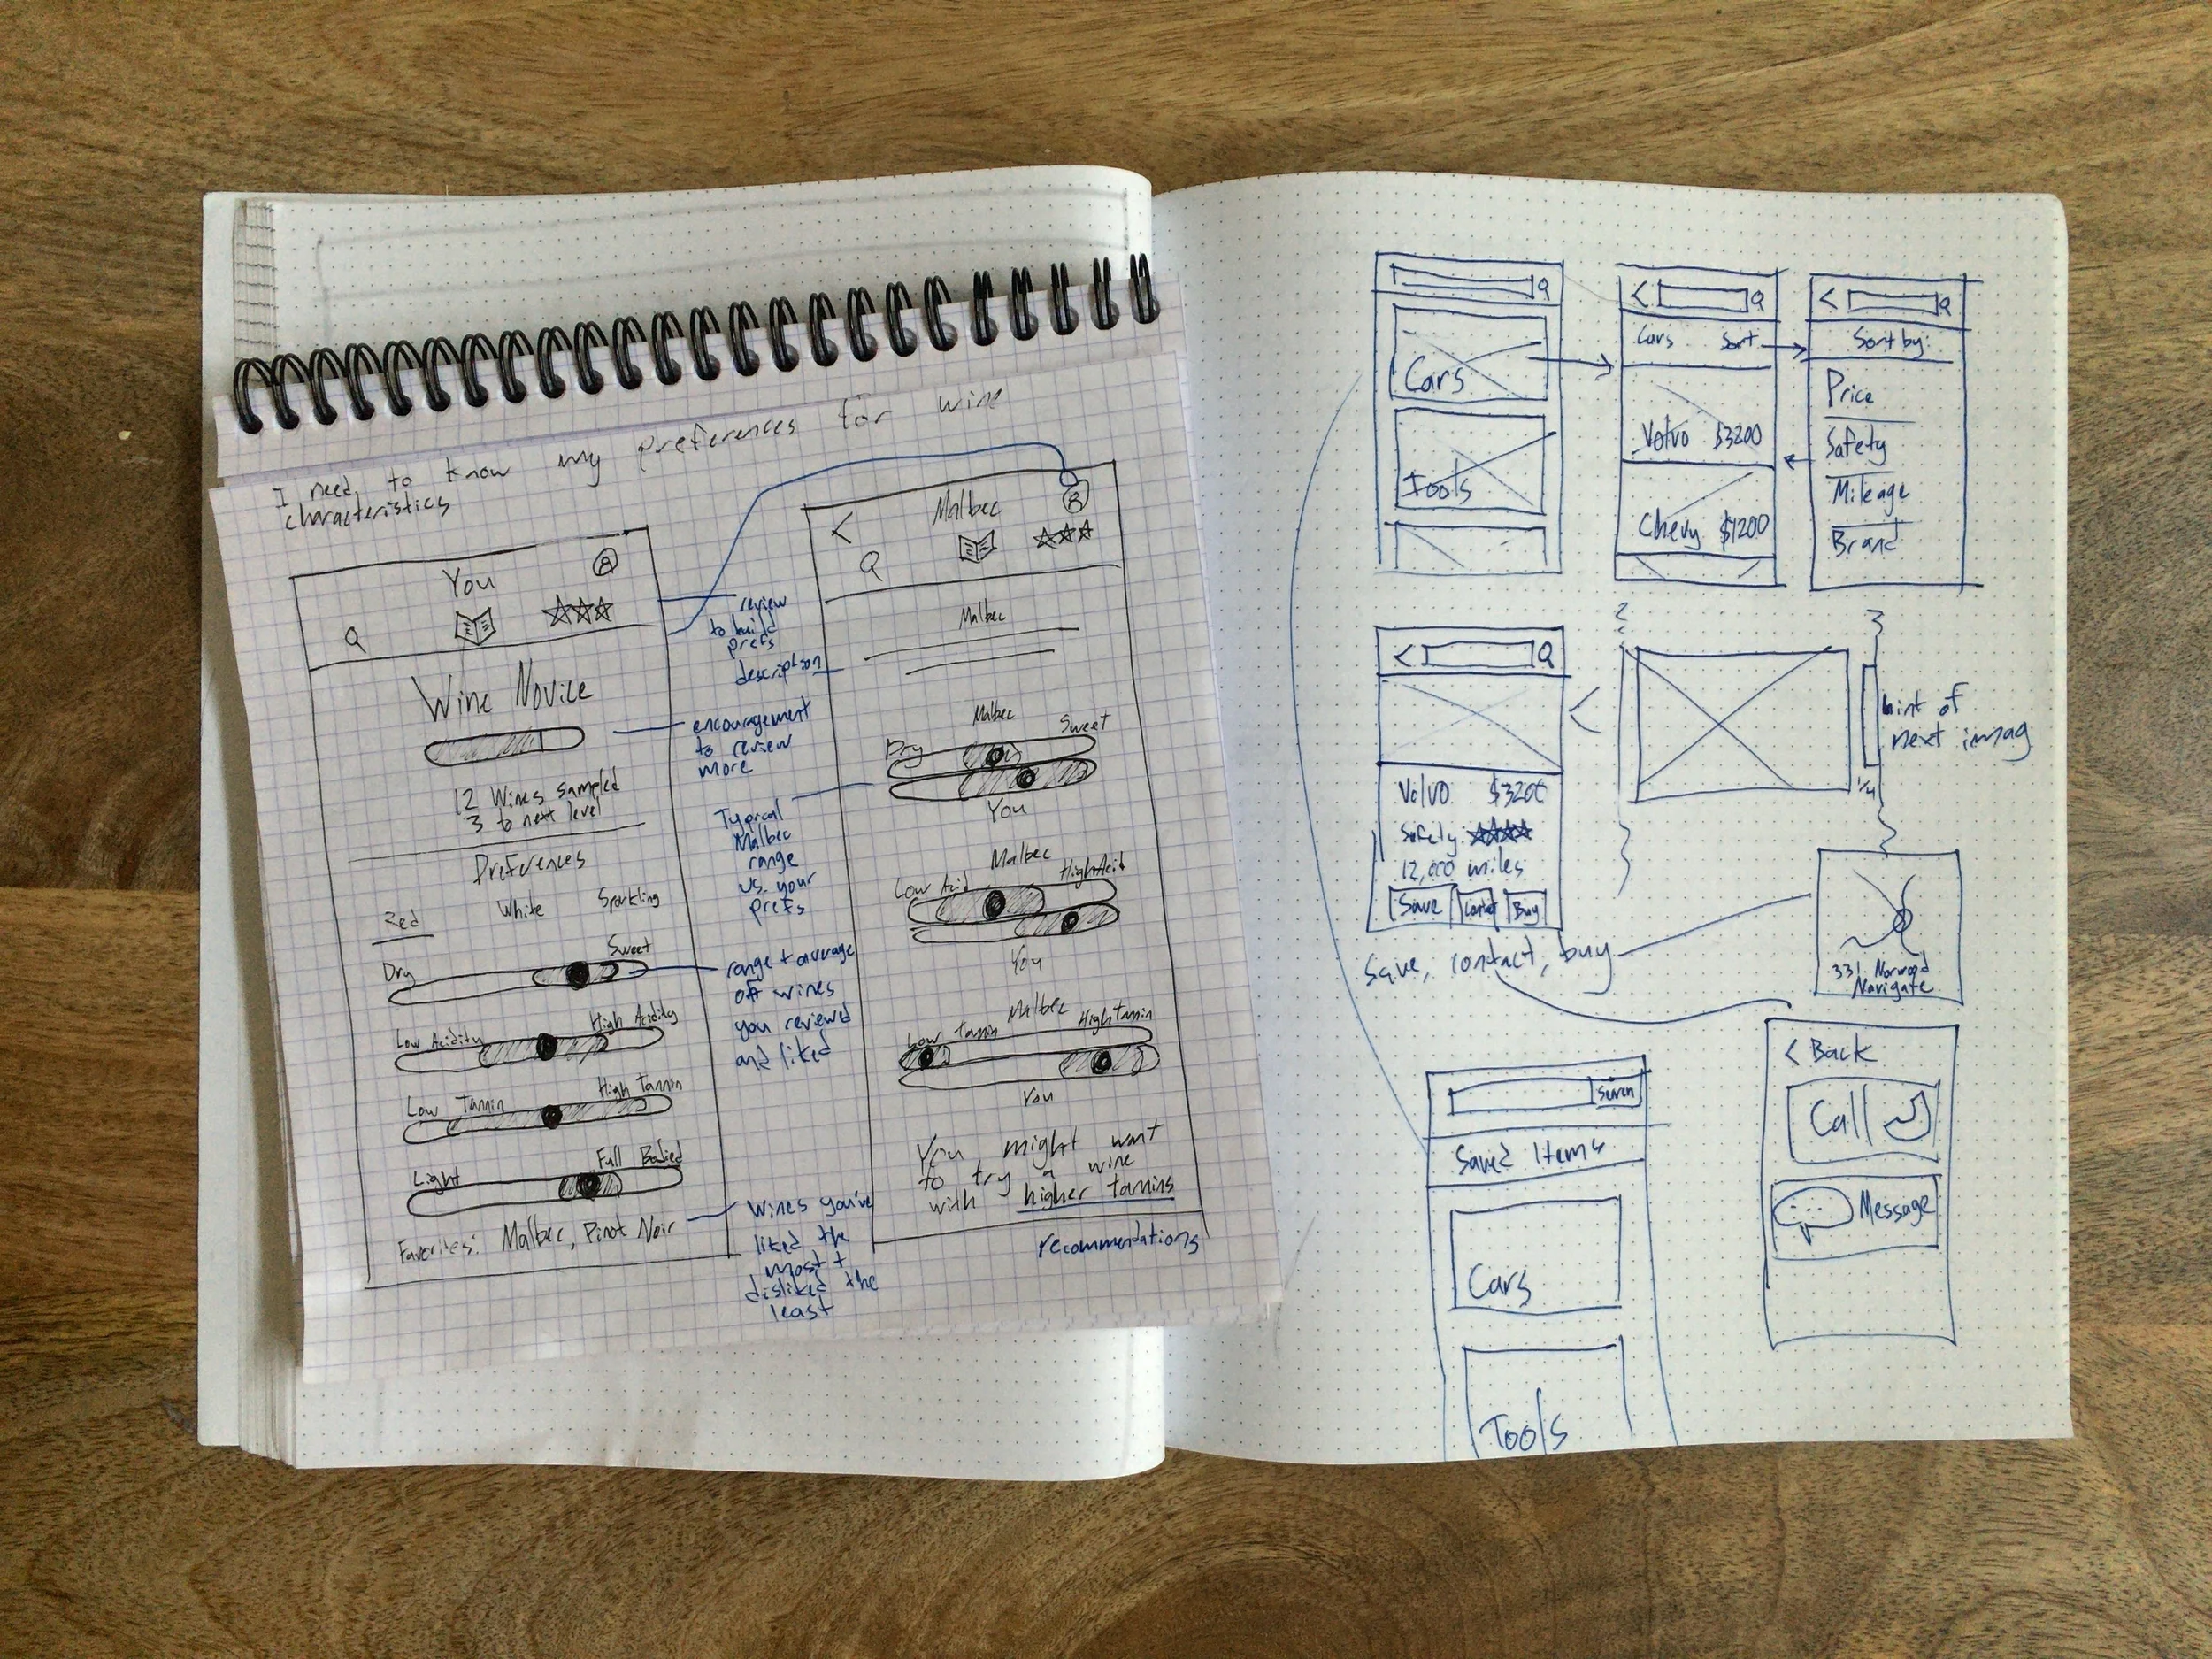 I need to know my preferences for wine
characteristics
You
Wine Novice
12 Wines sampled
3 to next level
Preferences
Red White Sparkling
Dry Sweet
Low Acidity High Acidity
Low Tannin High Tannin
Light Full Bodied
Favorites: Malbec, Pinot Noir
review
to build
prefs
description
encouragement
to review
more
Typical
Malbec
range
vs. your
prefs
range + average
off wines
you reviewed
and liked
Wines you've
liked the
most +
disliked the
least
Malbec
Malbec
Malbec
Dry Sweet
You
Malbec
Low Acid High Acid
You
Malbec
Low Tannin High Tannin
You
You might want
to try a wine
with higher tannins
recommendations
Cars
Tools
Cars Sort
Volvo $3200
Chevy $1200
Sort by:
Price
Safety
Mileage
Brand
Volvo $3200
Safety
12,000 miles
Save Contact Buy
Save, contact, buy
2
3
hint of
next imag
1/4
331 Norwood
Navigate
< Back
Call
Message
Saved Items
Cars
Tools